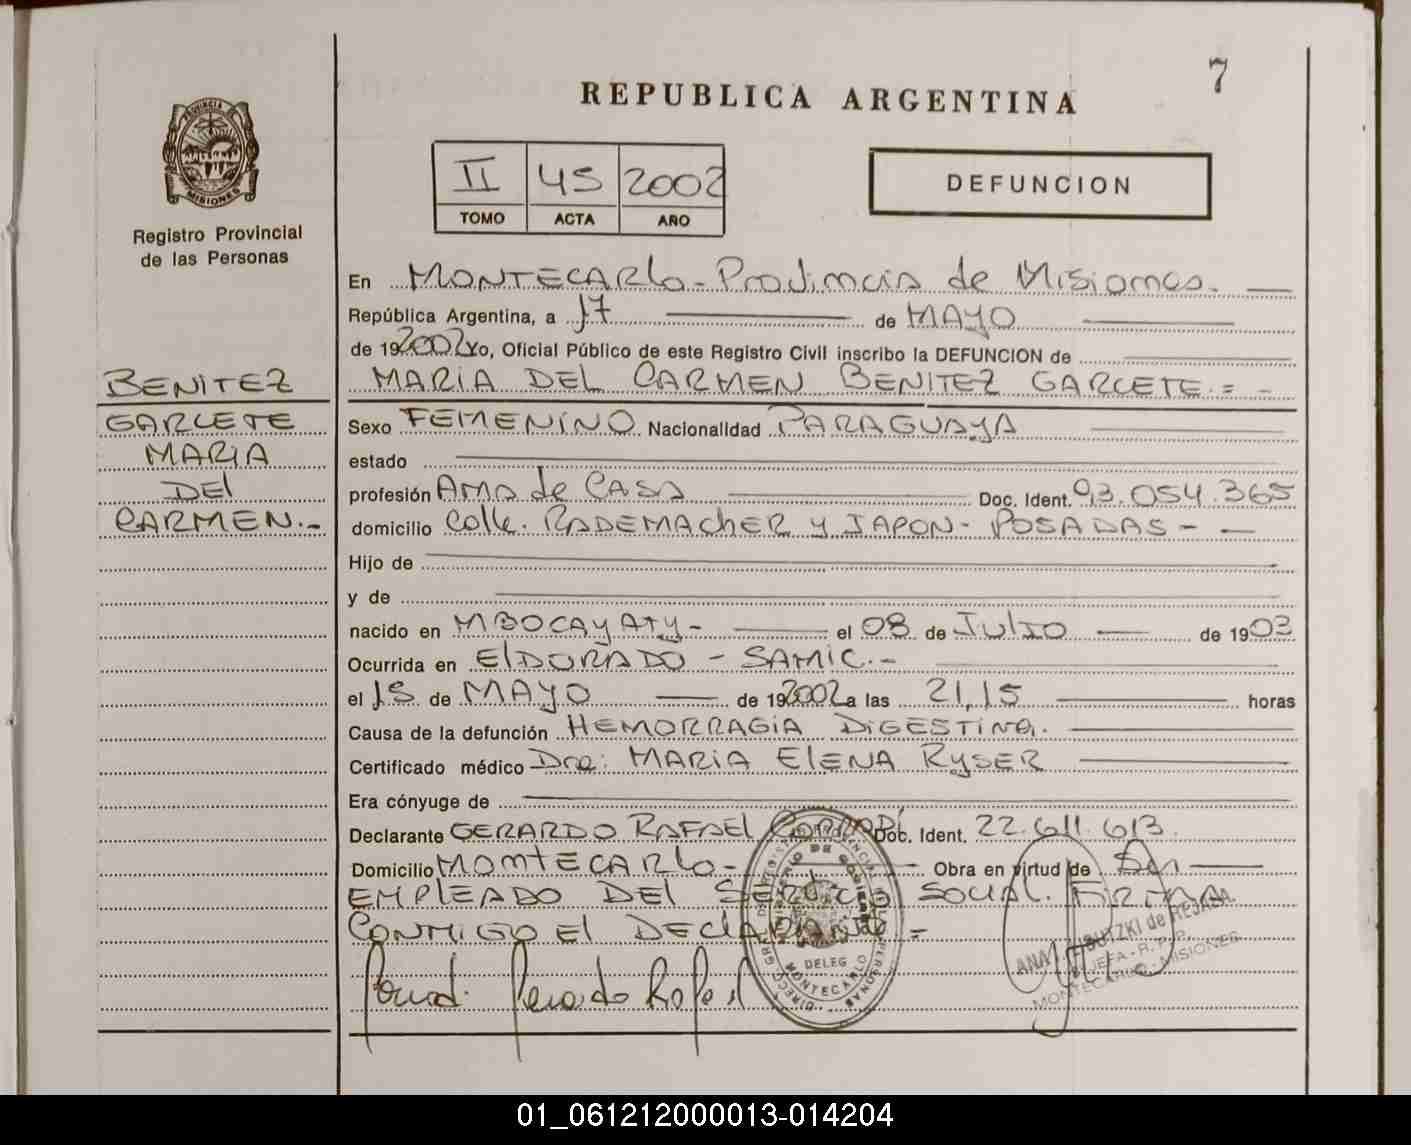 7
REPUBLICA ARGENTINA
PROVINCIA
MISIONES
II 45 2002
TOMO ACTA AÑO
DEFUNCION
Registro Provincial
de las Personas
En MONTECARLO - Provincia de Misiones.
República Argentina, a 17 de MAYO
de 192002 Yo, Oficial Público de este Registro Civil inscribo la DEFUNCION de
MARIA DEL CARMEN BENITEZ GARCETE.=-
BENITEZ
GARCETE
MARIA
DEL
CARMEN.-
Sexo FEMENINO Nacionalidad PARAGUAYA
estado
profesión Ama de CASA Doc. Ident. 93.054.365
domicilio Calle. RADEMACHER y JAPON - POSADAS -
Hijo de
y de
nacido en MBOCAYATY - el 08 de JULIO de 1903
Ocurrida en ELDORADO - SAMIC.-
el 15 de MAYO de 192002 a las 21,15 horas
Causa de la defunción HEMORRAGIA DIGESTIVA.
Certificado médico Dra: MARIA ELENA RYSER
Era cónyuge de
Declarante GERARDO RAFAEL Doc. Ident. 22.611.613.
Domicilio MONTECARLO - Obra en virtud de Ser
EMPLEADO DEL SERVICIO SOCIAL. FIRMA
CONMIGO EL DECLARANTE =
Gerardo Rafael
MINISTERIO DE GOBIERNO
DELEG
MONTECARLO
ANA de REJALA
JEFA - R.P.P.
MONTECARLO - MISIONES
01_061212000013-014204